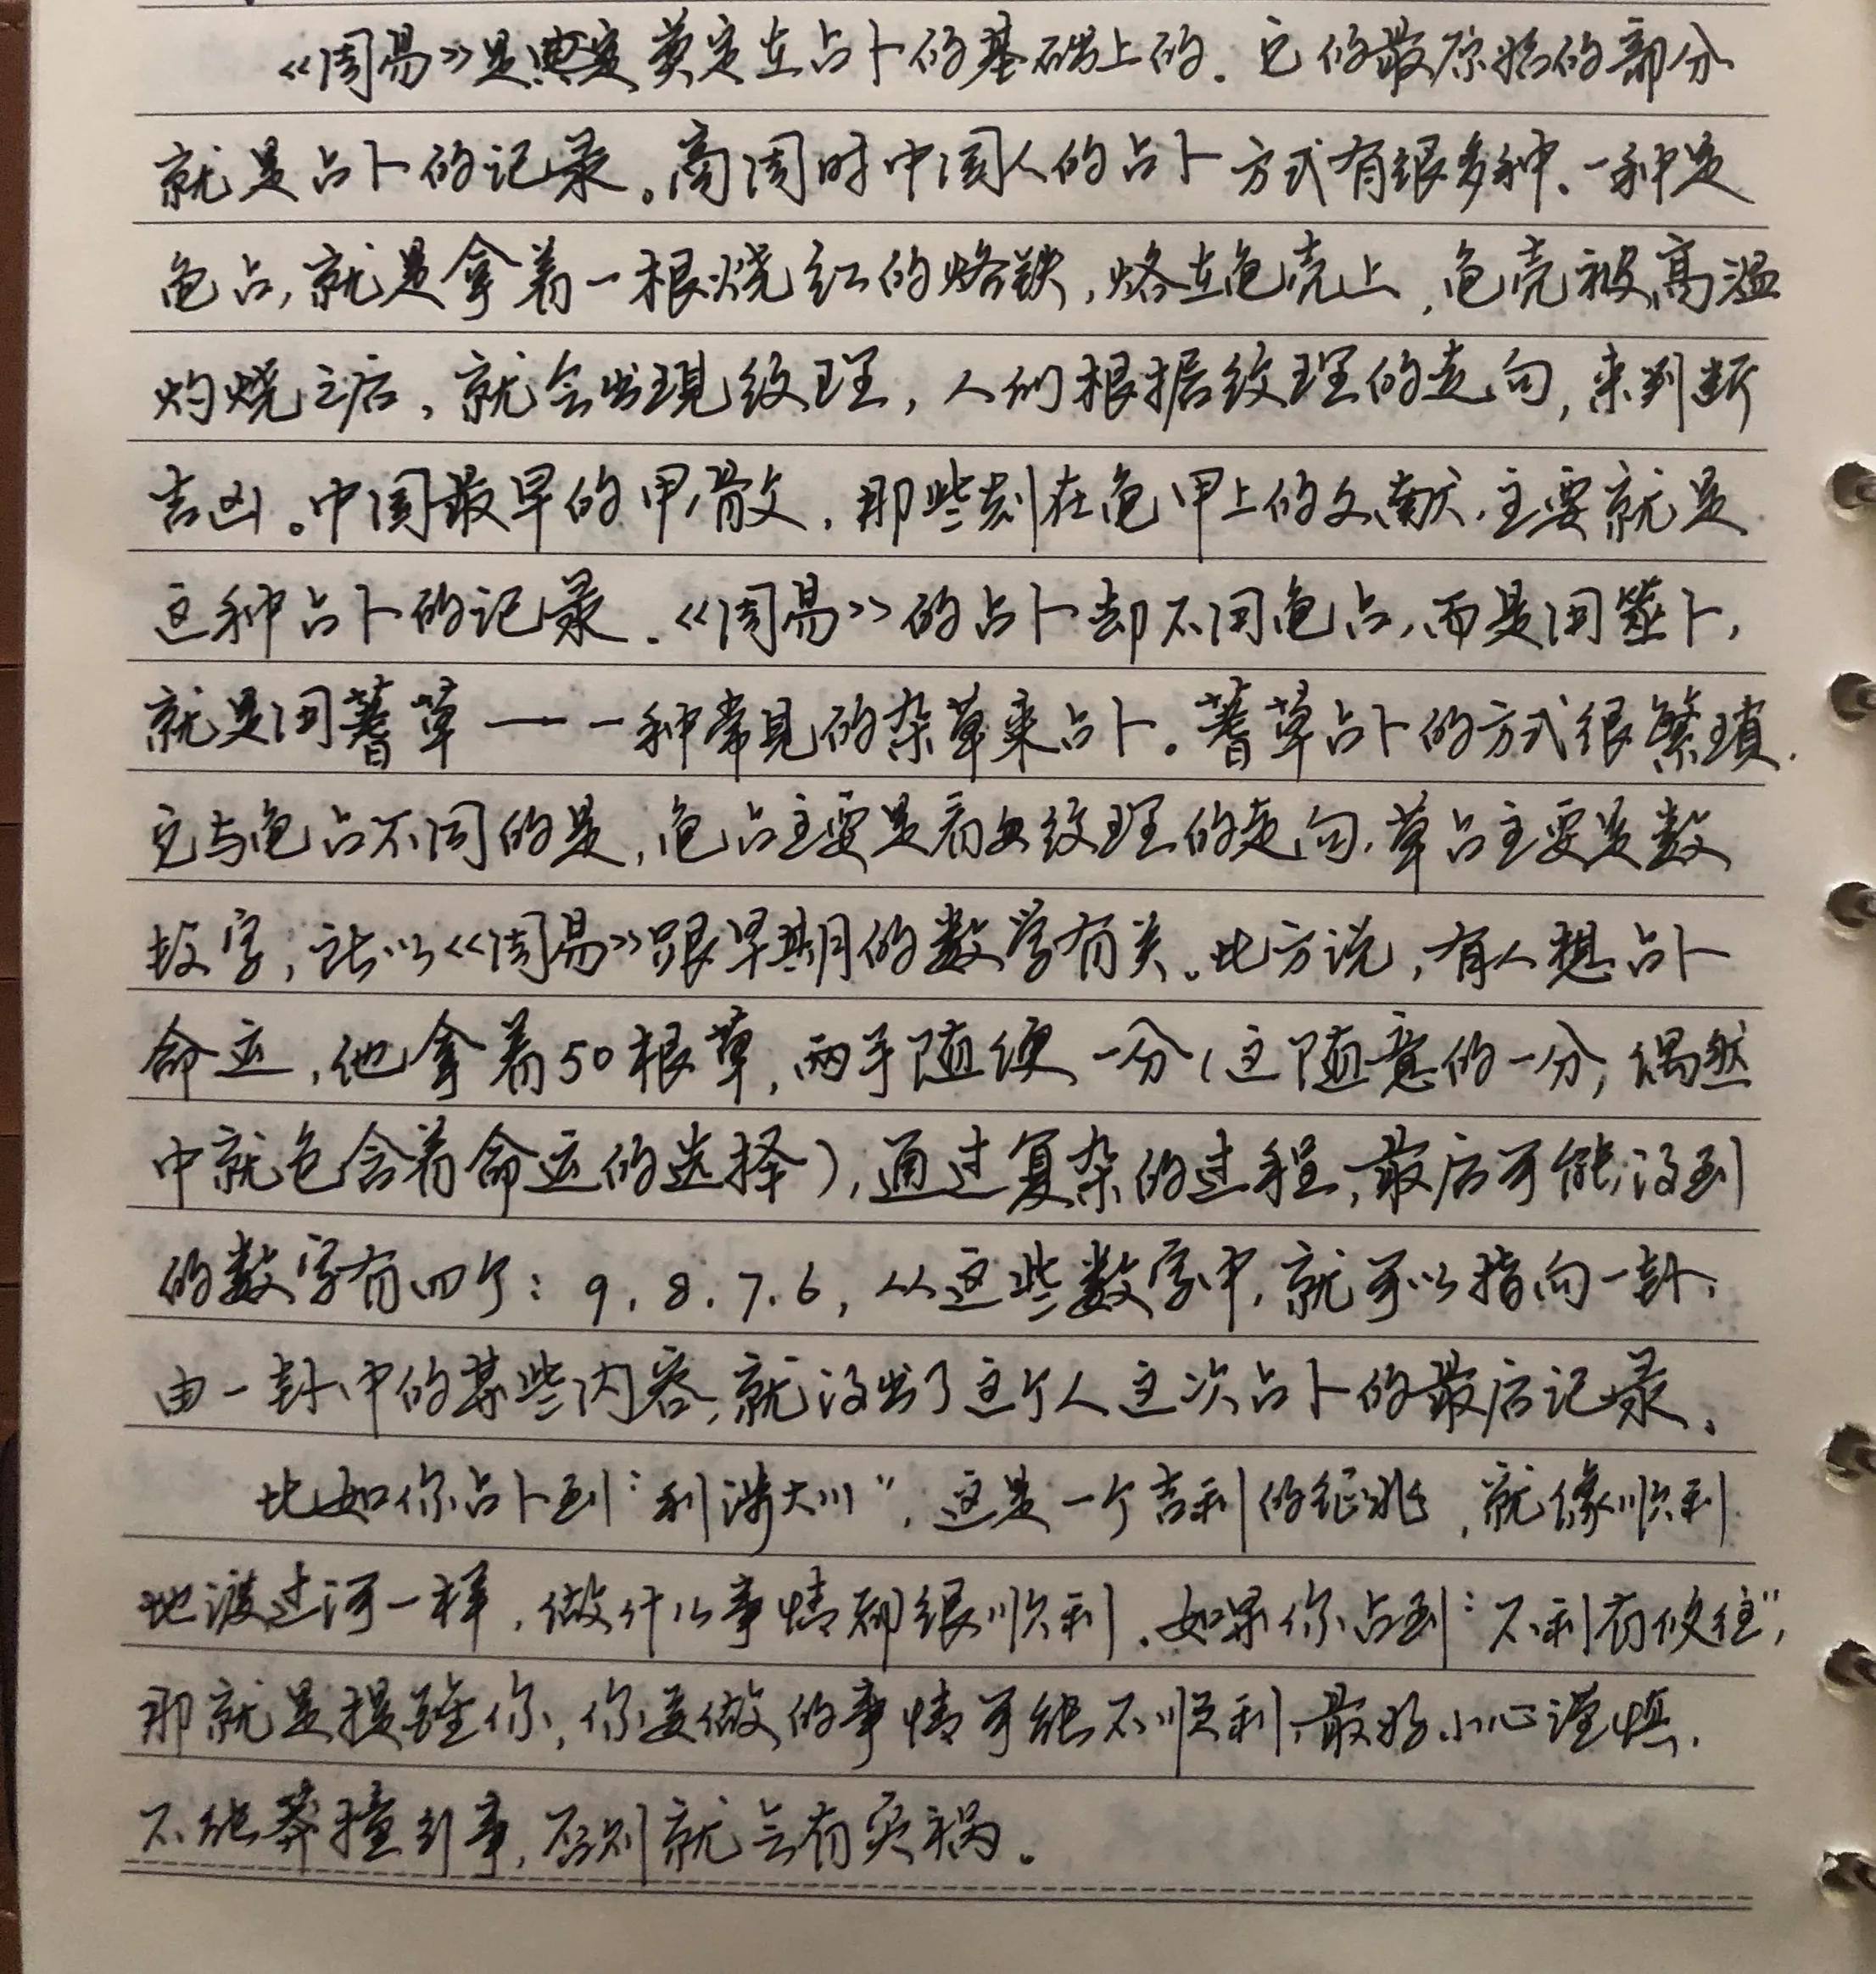 《周易》是奠定在占卜的基础上的。它的最原始的部分
就是占卜的记录。商周时中国人的占卜方式有很多种、一种是
龟占,就是拿着一根烧红的烙铁,烙在龟壳上,龟壳被高温
灼烧之后,就会出现纹理,人们根据纹理的走向,来判断
吉凶。中国最早的甲骨文,那些刻在龟甲上的文献,主要就是
这种占卜的记录。《周易》的占卜却不用龟占,而是用筮卜,
就是用蓍草——一种常见的杂草来占卜。蓍草占卜的方式很繁琐.
它与龟占不同的是,龟占主要是看纹理的走向,草占主要是数
数字,所以《周易》跟早期的数学有关。比方说,有人想占卜
命运,他拿着50根草,两手随便一分(这随意的一分,偶然
中就包含着命运的选择),通过复杂的过程,最后可能得到
的数字有四个:9.8.7.6,从这些数字中,就可以指向一卦,
由一卦中的某些内容,就得出了这个人这次占卜的最后记录.
比如你占卜到“利涉大川”,这是一个吉利的征兆,就像顺利
地渡过河一样,做什么事情都很顺利.如果你占到“不利有攸往”,
那就是提醒你,你要做的事情可能不顺利,最好小心谨慎.
不能莽撞行事,否则就会有灾祸。